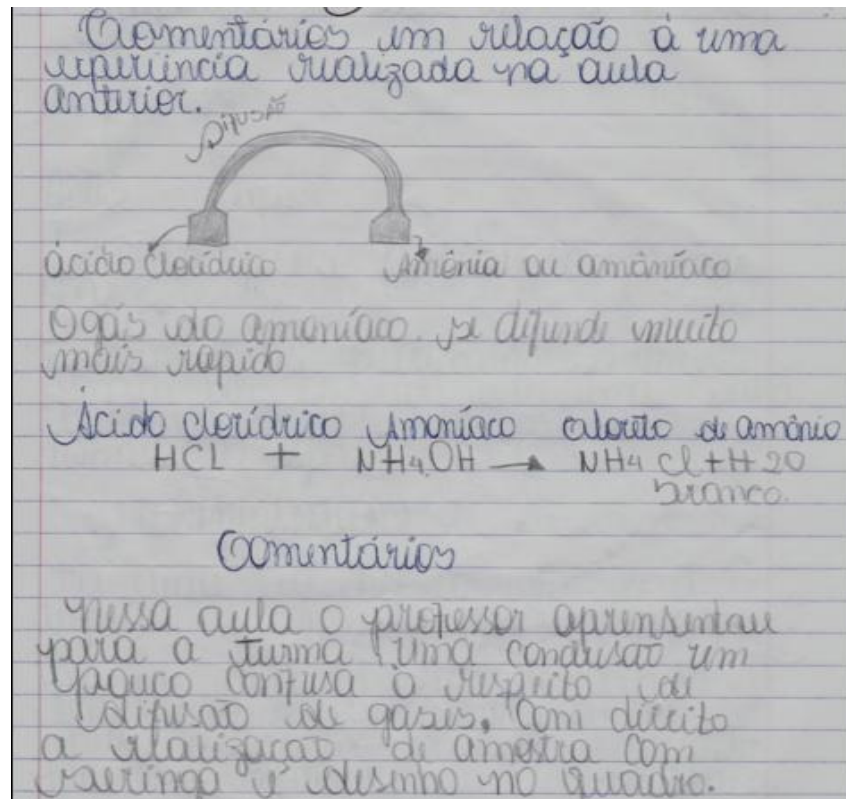 Comentários em relação á uma
experiência realizada na aula
anterior.
DIFUSÃO
ácido Clorídrico Amônia ou amôníaco
O gás do amoníaco se difunde muito
mais rápido
Ácido clorídrico Amoníaco cloreto de amônio
HCL + NH4OH → NH4 Cl + H2O
branco.
Comentários
Nessa aula o professor aprensentau
para a turma uma conclusão um
pouco confusa o respeito de
difusão de gases. Com direito
a realização de amostra com
seringa e desenho no quadro.